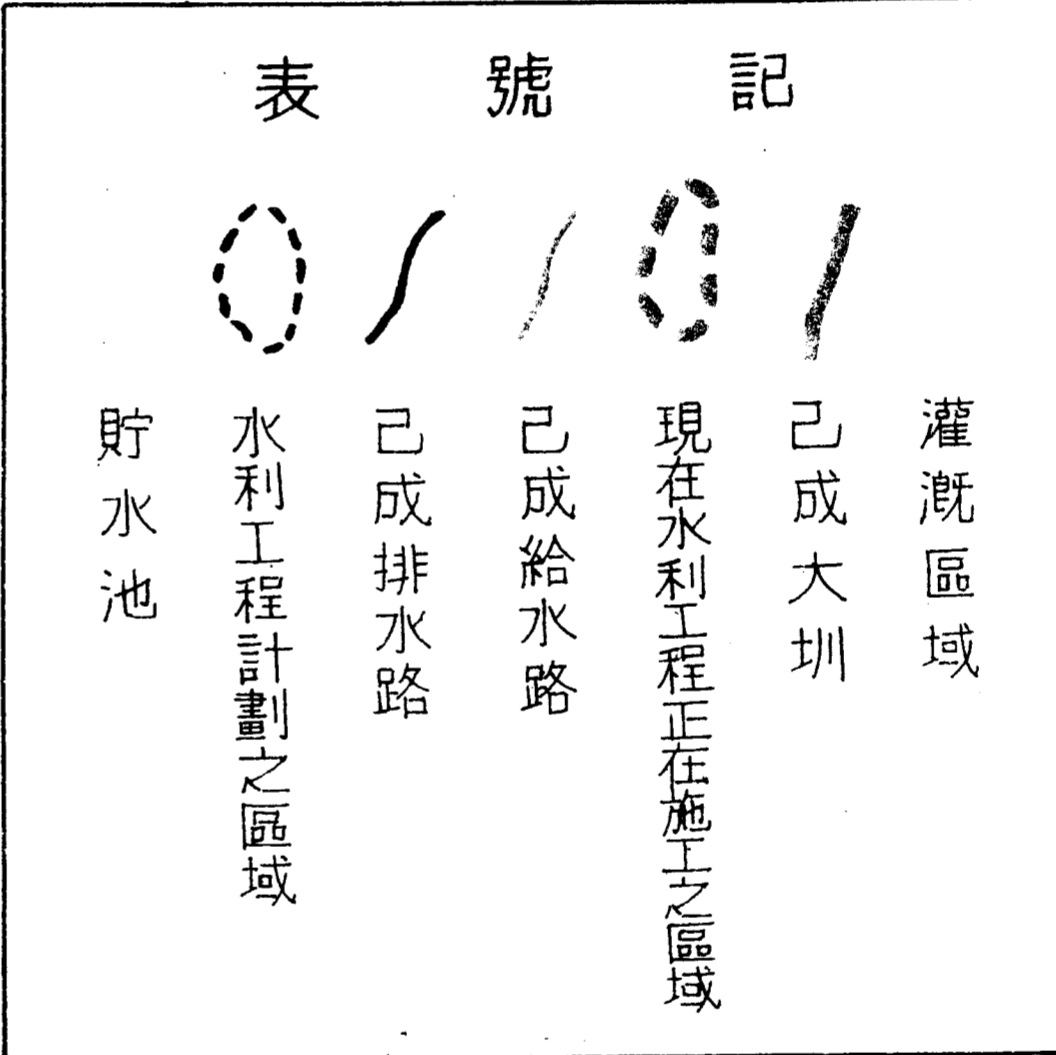 記號表
灌溉區域
己成大圳
現在水利工程正在施工之區域
己成給水路
己成排水路
水利工程計劃之區域
貯水池